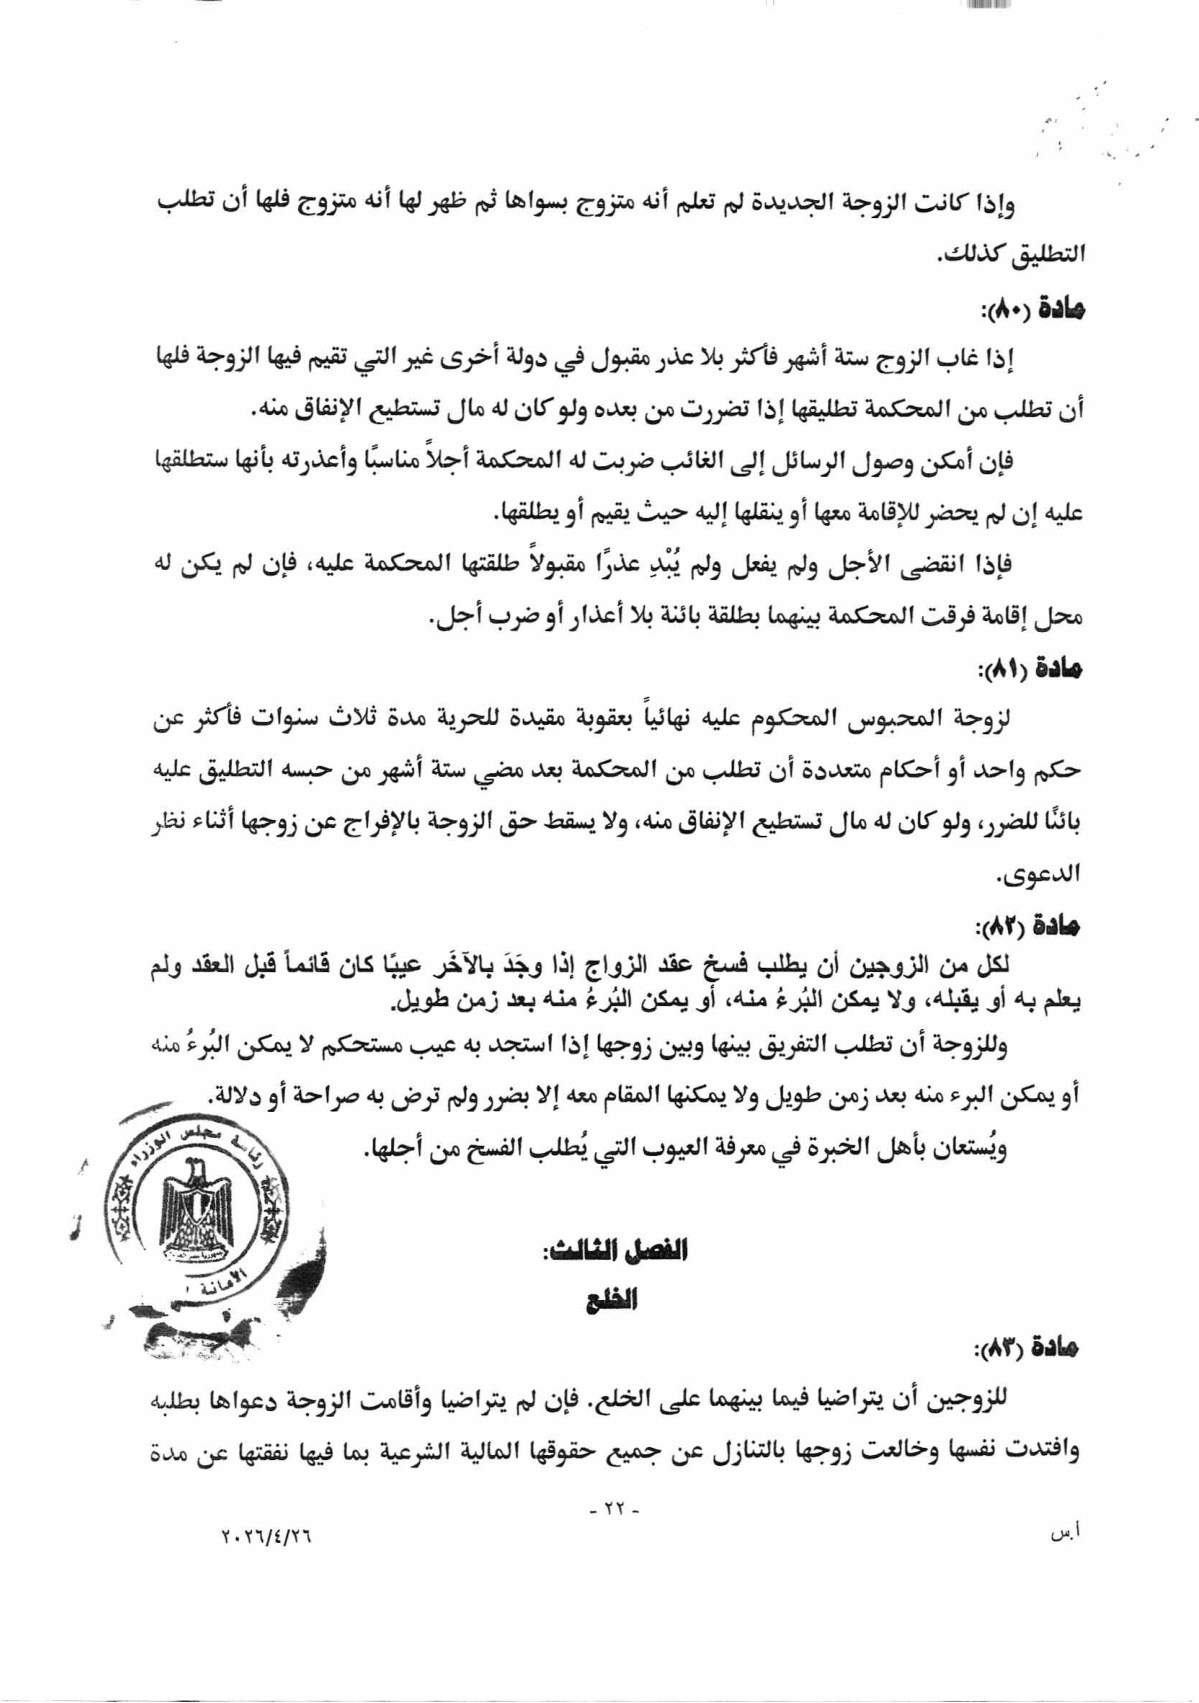 وإذا كانت الزوجة الجديدة لم تعلم أنه متزوج بسواها ثم ظهر لها أنه متزوج فلها أن تطلب
التطليق كذلك.
مادة (٨٠):
إذا غاب الزوج ستة أشهر فأكثر بلا عذر مقبول في دولة أخرى غير التي تقيم فيها الزوجة فلها
أن تطلب من المحكمة تطليقها إذا تضررت من بعده ولو كان له مال تستطيع الإنفاق منه.
فإن أمكن وصول الرسائل إلى الغائب ضربت له المحكمة أجلاً مناسبًا وأعذرته بأنها ستطلقها
عليه إن لم يحضر للإقامة معها أو ينقلها إليه حيث يقيم أو يطلقها.
فإذا انقضى الأجل ولم يفعل ولم يُبْدِ عذرًا مقبولاً طلقتها المحكمة عليه، فإن لم يكن له
محل إقامة فرقت المحكمة بينهما بطلقة بائنة بلا أعذار أو ضرب أجل.
مادة (٨١):
لزوجة المحبوس المحكوم عليه نهائياً بعقوبة مقيدة للحرية مدة ثلاث سنوات فأكثر عن
حكم واحد أو أحكام متعددة أن تطلب من المحكمة بعد مضي ستة أشهر من حبسه التطليق عليه
بائنًا للضرر، ولو كان له مال تستطيع الإنفاق منه، ولا يسقط حق الزوجة بالإفراج عن زوجها أثناء نظر
الدعوى.
مادة (٨٢):
لكل من الزوجين أن يطلب فسخ عقد الزواج إذا وجَدَ بالآخَر عيبًا كان قائماً قبل العقد ولم
يعلم به أو يقبله، ولا يمكن البُرءُ منه، أو يمكن البُرءُ منه بعد زمن طويل.
وللزوجة أن تطلب التفريق بينها وبين زوجها إذا استجد به عيب مستحكم لا يمكن البُرءُ منه
أو يمكن البرء منه بعد زمن طويل ولا يمكنها المقام معه إلا بضرر ولم ترض به صراحة أو دلالة.
ويُستعان بأهل الخبرة في معرفة العيوب التي يُطلب الفسخ من أجلها.
رئاسة مجلس الوزراء
الأمانة
الفصل الثالث:
الخلع
مادة (٨٣):
للزوجين أن يتراضيا فيما بينهما على الخلع. فإن لم يتراضيا وأقامت الزوجة دعواها بطلبه
وافتدت نفسها وخالعت زوجها بالتنازل عن جميع حقوقها المالية الشرعية بما فيها نفقتها عن مدة
- ٢٢ -
أ.س
٢٠٢٦/٤/٢٦